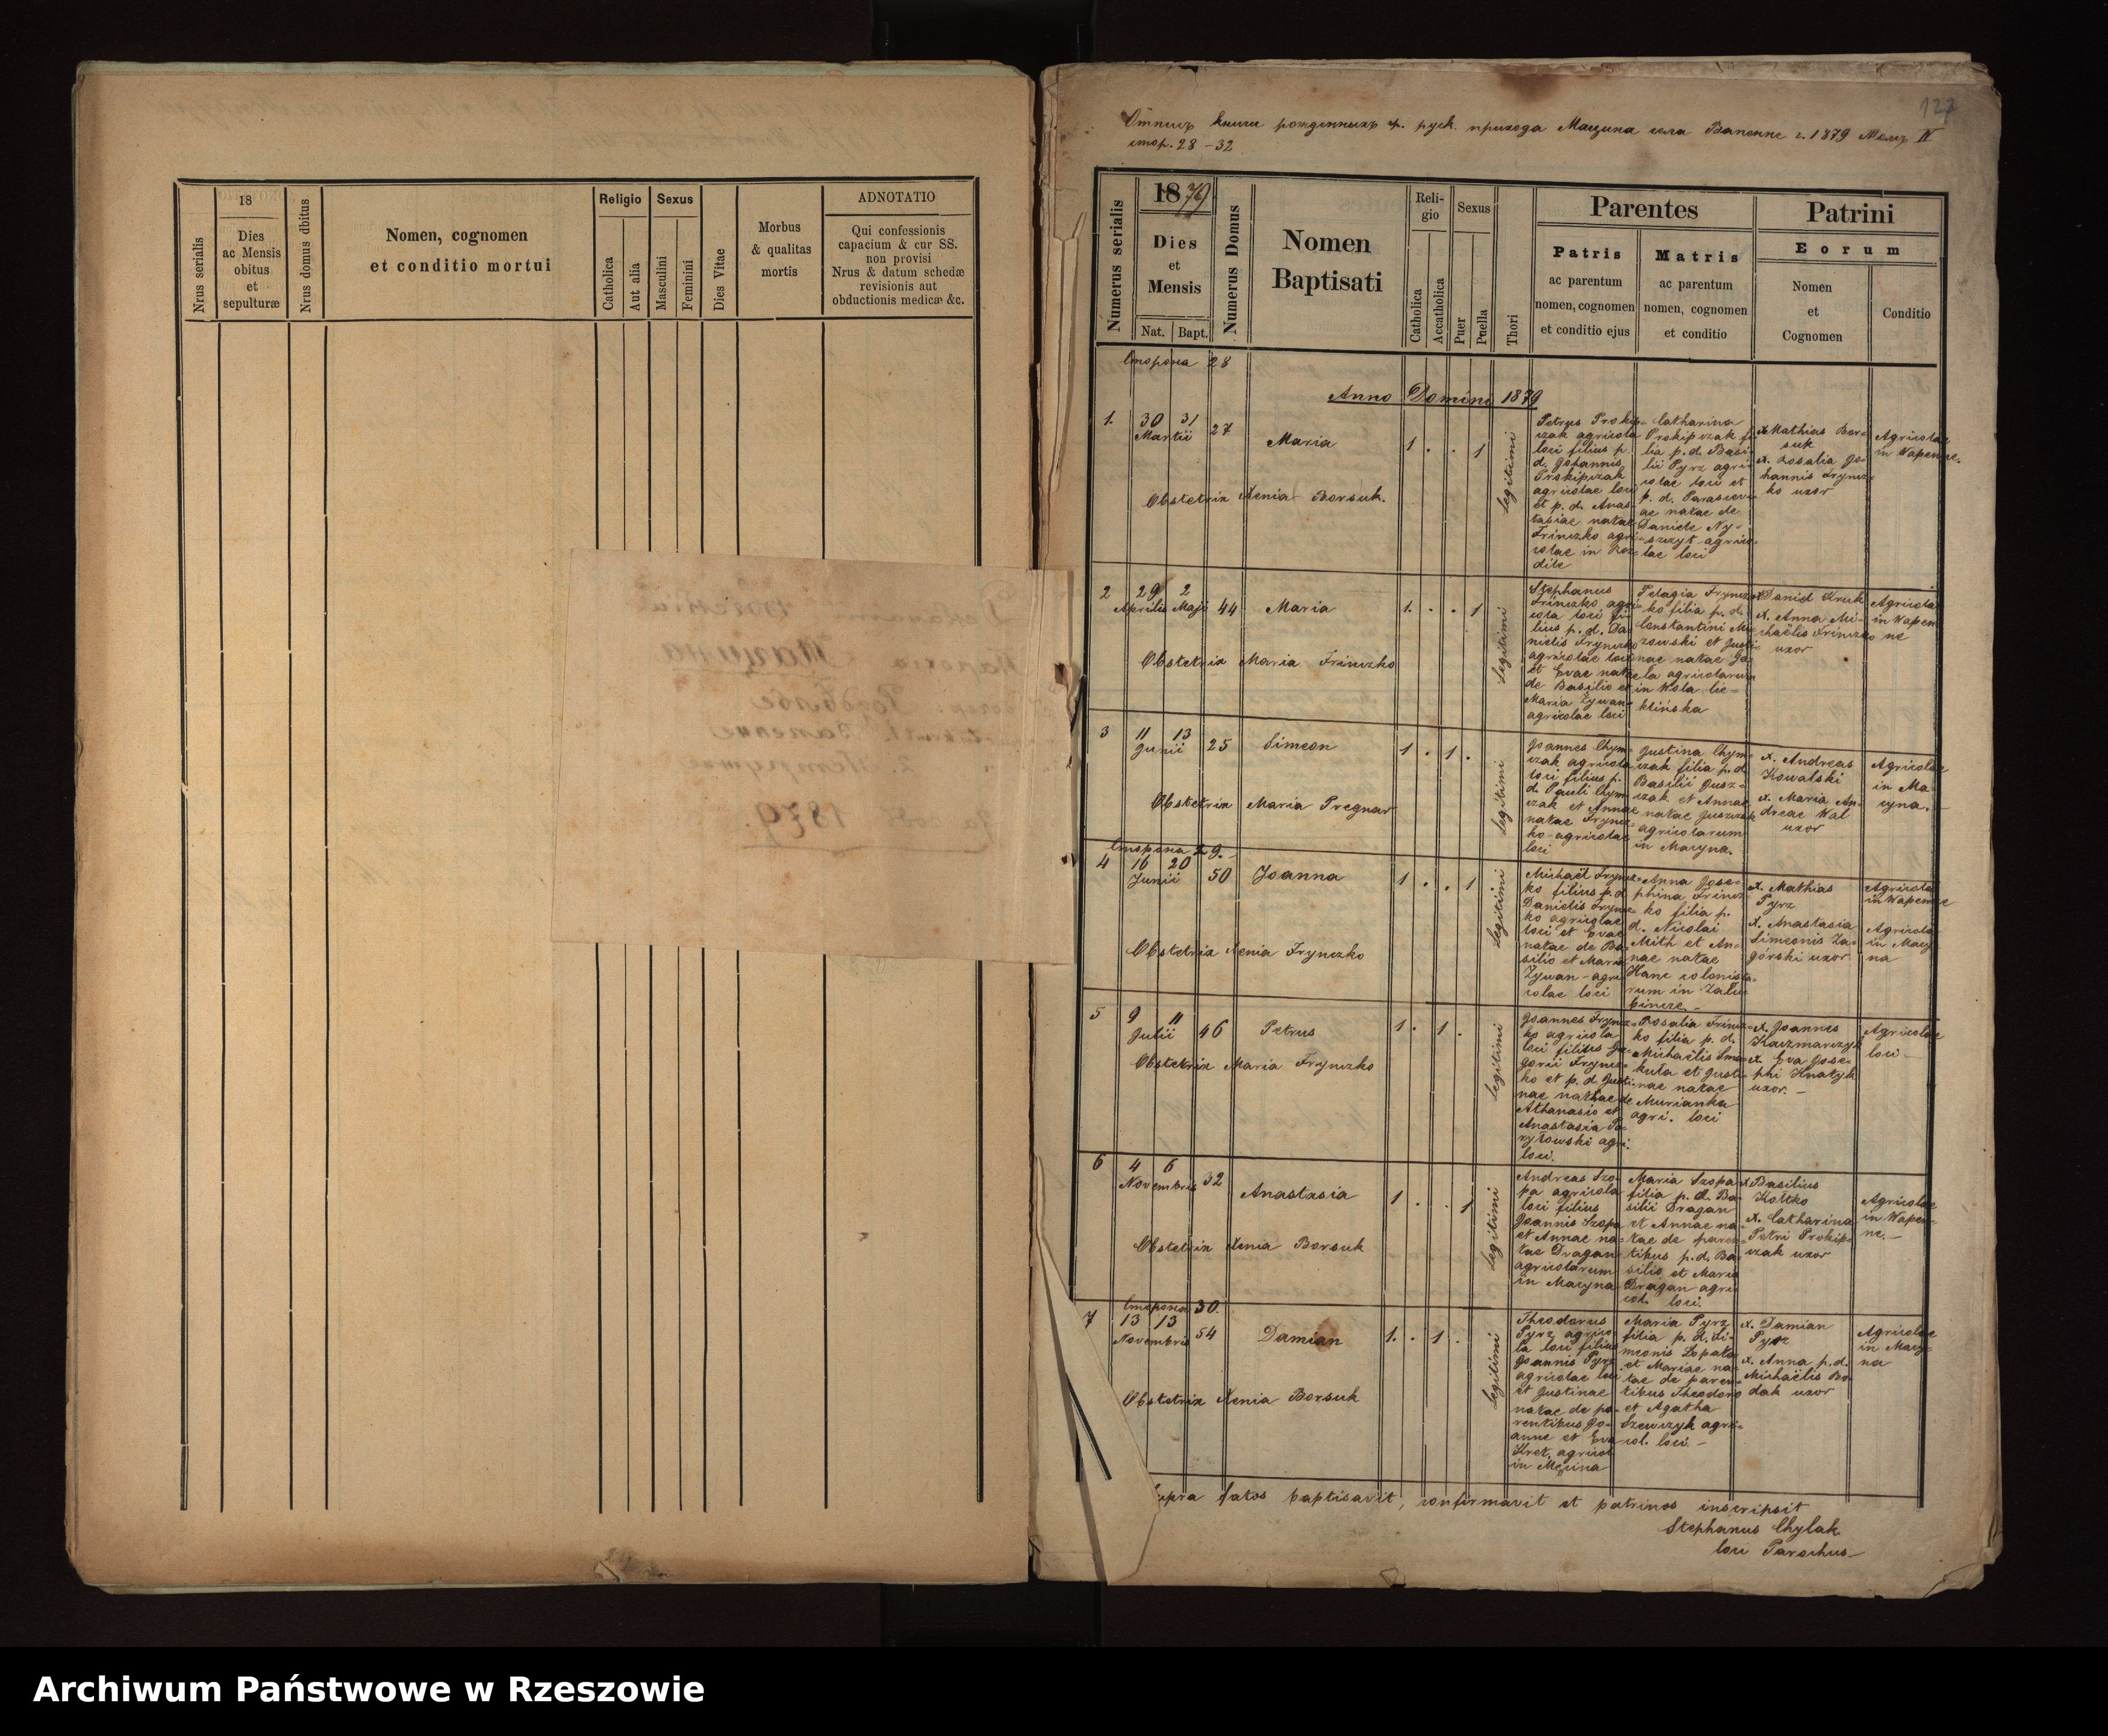 Nrus serialis
18
Dies
ac Mensis
obitus
et
sepulturæ
Nrus domus dbitus
Nomen, cognomen
et conditio mortui
Religio
Catholica
Aut alia
Sexus
Masculini
Feminini
Dies Vitae
Morbus
& qualitas
mortis
ADNOTATIO
Qui confessionis
capacium & cur SS.
non provisi
Nrus & datum schedæ
revisionis aut
obductionis medicæ &c.
127
Отпись книги рожденныхъ гр. руск. прихода Мацина села Вапенне г. 1879 Томъ IV
стор. 28-32
Numerus serialis
1879
Dies
et
Mensis
Nat.
Bapt.
Numerus Domus
Nomen
Baptisati
Reli-
gio
Catholica
Accatholica
Sexus
Puer
Puella
Thori
Parentes
Patris
ac parentum
nomen, cognomen
et conditio ejus
Matris
ac parentum
nomen, cognomen
et conditio
Patrini
Eorum
Nomen
et
Cognomen
Conditio
Сторона 28
Anno Domini 1879
1. 30 31 Martii 27 Maria 1 . . 1 Legitimi
Obstetrix Xenia Borsuk.
Petrus Prokip-
czak agricola
loci filius p.
d. Johannis
Prokipczak
agricolae loci
et p. d. Anas-
tasiae natae
Frinczko agri-
colae in Roz-
dile
Catharina
Prokipczak fi-
lia p. d. Basi-
lii Pyrz agri-
colae loci et
p. d. Parascev-
ae natae de
Daniele Ny-
szczyt agrico-
lae loci
x. Mathias Bor-
suk
x. Rosalia Jo-
hannis Frincz-
ko uxor
Agricolae
in Wapenne.
2 29 2 Aprilis Maji 44 Maria 1. . . 1 Legitimi
Obstetrix Maria Frinczko
Stephanus
Frinczko agri-
cola loci fi-
lius p. d. Da-
nielis Frynczko
agricolae loci
et Evae natae
de Basilio et
Maria Zywan
agricolae loci
Pelagia Frincz-
ko filia p. d.
Constantini
et Justi-
nae natae
agricolarum
in Wola Cie-
klińska
x. Daniel Kruk
x. Anna Mi-
chaëlis Frinczko
uxor
Agricolae
in Wapen
ne
3 11 13 Junii 25 Simeon 1 . 1 . Legitimi
Obstetrix Maria Pregnar
Joannes Chym-
czak agricola
loci filius p.
d. Pauli Chym-
czak et Annae
natae Frincz-
ko agricolae
loci
Justina Chym-
czak filia p. d.
Basilii Juszczak
et Annae
natae Juszczak
agricolarum
in Macyna.
x. Andreas
Kowalski
x. Maria An-
dreae Wal
uxor
Agricolae
in Ma-
cyna.
Сторона 29.
4 16 20 Junii 50 Joanna 1 . . 1 Legitimi
Obstetrix Xenia Frynczko
Michaël Frincz-
ko filius p. d.
Danielis Frincz-
ko agricolae
loci et Evae
natae de Ba-
silio et Maria
Zywan - agri-
colae loci
Anna Jose-
phina Frincz-
ko filia p.
d. Nicolai
Mith et An-
nae natae
Hanc colonista-
rum in Zału-
bincze. -
x. Mathias
Pyrz
x. Anastasia
Simeonis Za-
górski uxor
Agricolae
in Wapenne
Agricola
in Macy
na
5 9 11 Julii 46 Petrus 1 . 1 . Legitimi
Obstetrix Maria Frynczko
Joannes Frincz-
ko agricola
loci filius Gre-
gorii Frincz-
ko et p. d. Justi-
nae natae de
Athanasio et
Anastasia
agri.
loci.
Rosalia Frincz-
ko filia p. d.
Michaëlis
et Justi-
nae natae
Murianka
agri. loci
x. Joannes
Kaczmarczyk
x. Eva Jose-
phi Hnatyk
uxor. -
Agricolae
loci -
6 4 6 Novembris 32 Anastasia 1 . . 1 Legitimi
Obstetrix Xenia Borsuk
Andreas Szo-
pa agricola
loci filius
Joannis Szopa
et Annae na-
tae Dragan
agricolarum
in Macyna
Maria Szopa
filia p. d. Ba-
silii Dragan
et Annae na-
tae de paren-
tibus p. d. Ba-
silio et Maria
Dragan agri-
col. loci.
x. Basilius
Kottko
x. Catharina
Petri Prokip-
czak uxor
Agricolae
in Wapen-
ne. -
Сторона 30.
7 13 13 Novembris 54 Damian 1. . 1 . Legitimi
Obstetrix Xenia Borsuk
Theodorus
Pyrz agrico-
la loci filius
Joannis Pyrz
agricolae loci
et Justinae
natae de pa-
rentibus Jo-
anne et Eva
Kret, agricol
in Męcina
Maria Pyrz
filia p. d. Si-
meonis Łopata
et Mariae na-
tae de paren-
tibus Theodoro
et Agatha
Szewczyk agri-
col. loci -
x. Damian
Pyrz
x. Anna p. d.
Michaëlis Bo-
dak uxor
Agricolae
in Macy-
na
supra fatos baptisavit, confirmavit et patrinos inscripsit
Stephanus Chylak
loci Parochus
Archiwum Państwowe w Rzeszowie